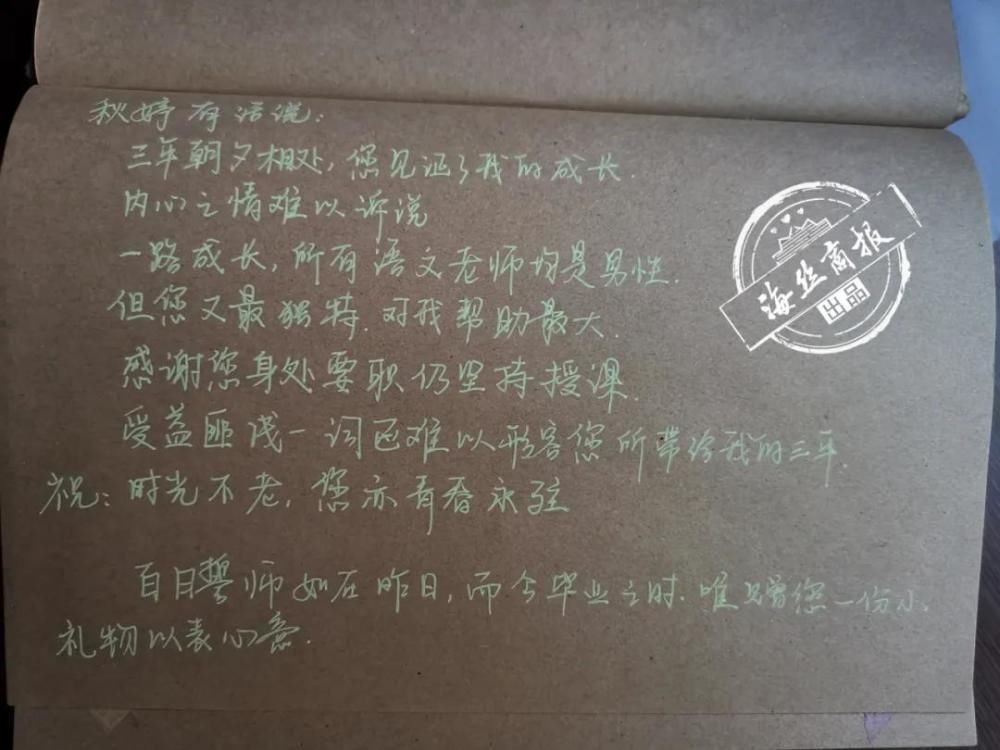 秋婷有话说：
三年朝夕相处，您见证了我的成长.
内心之情难以诉说
一路成长，所有语文老师均是男性.
但您又最独特.对我帮助最大.
感谢您身处要职仍坚持授课.
受益匪浅一词已难以形容您所带给我的三年.
祝：时光不老，您亦青春永驻
百日誓师如在昨日，而今毕业之时.唯赠您一份小
礼物以表心意.
海丝商报
出品